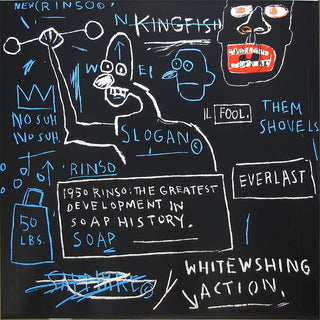 NEW(RINSO©
N
KINGFISH
W E
IL FOOL.
THEM
SHOVELS
NO SUH
NO SUH
SLOGAN©
RINSO
1950 RINSO: THE GREATEST
DEVELOPMENT IN
SOAP HISTORY.
SOAP
EVERLAST
50
LBS.
SAPPHIRE©
WHITEWSHING
ACTION.